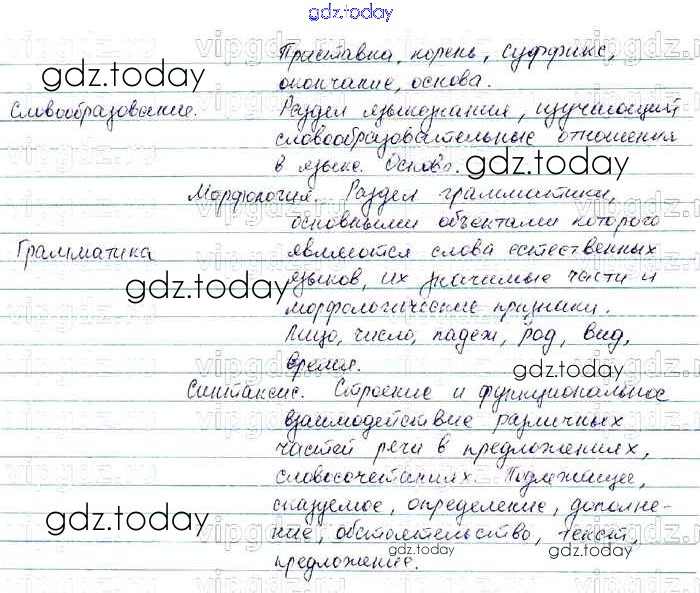 gdz.today
Приставка, корень, суффикс,
gdz.today
окончание, основа.
Словообразование. Раздел языкознания, изучающий
словообразовательные отношения
в языке. Основа. gdz.today
Морфология. Раздел грамматики,
основными объектами которого
Грамматика являются слова естественных
языков, их значимые части и
gdz.today
морфологические признаки.
Лицо, число, падеж, род, вид,
время. gdz.today
Синтаксис. Строение и функциональное
взаимодействие различных
частей речи в предложениях,
словосочетаниях. Подлежащее,
gdz.today
сказуемое, определение, дополне-
ние, обстоятельство, текст,
gdz.today gdz.today
предложение.